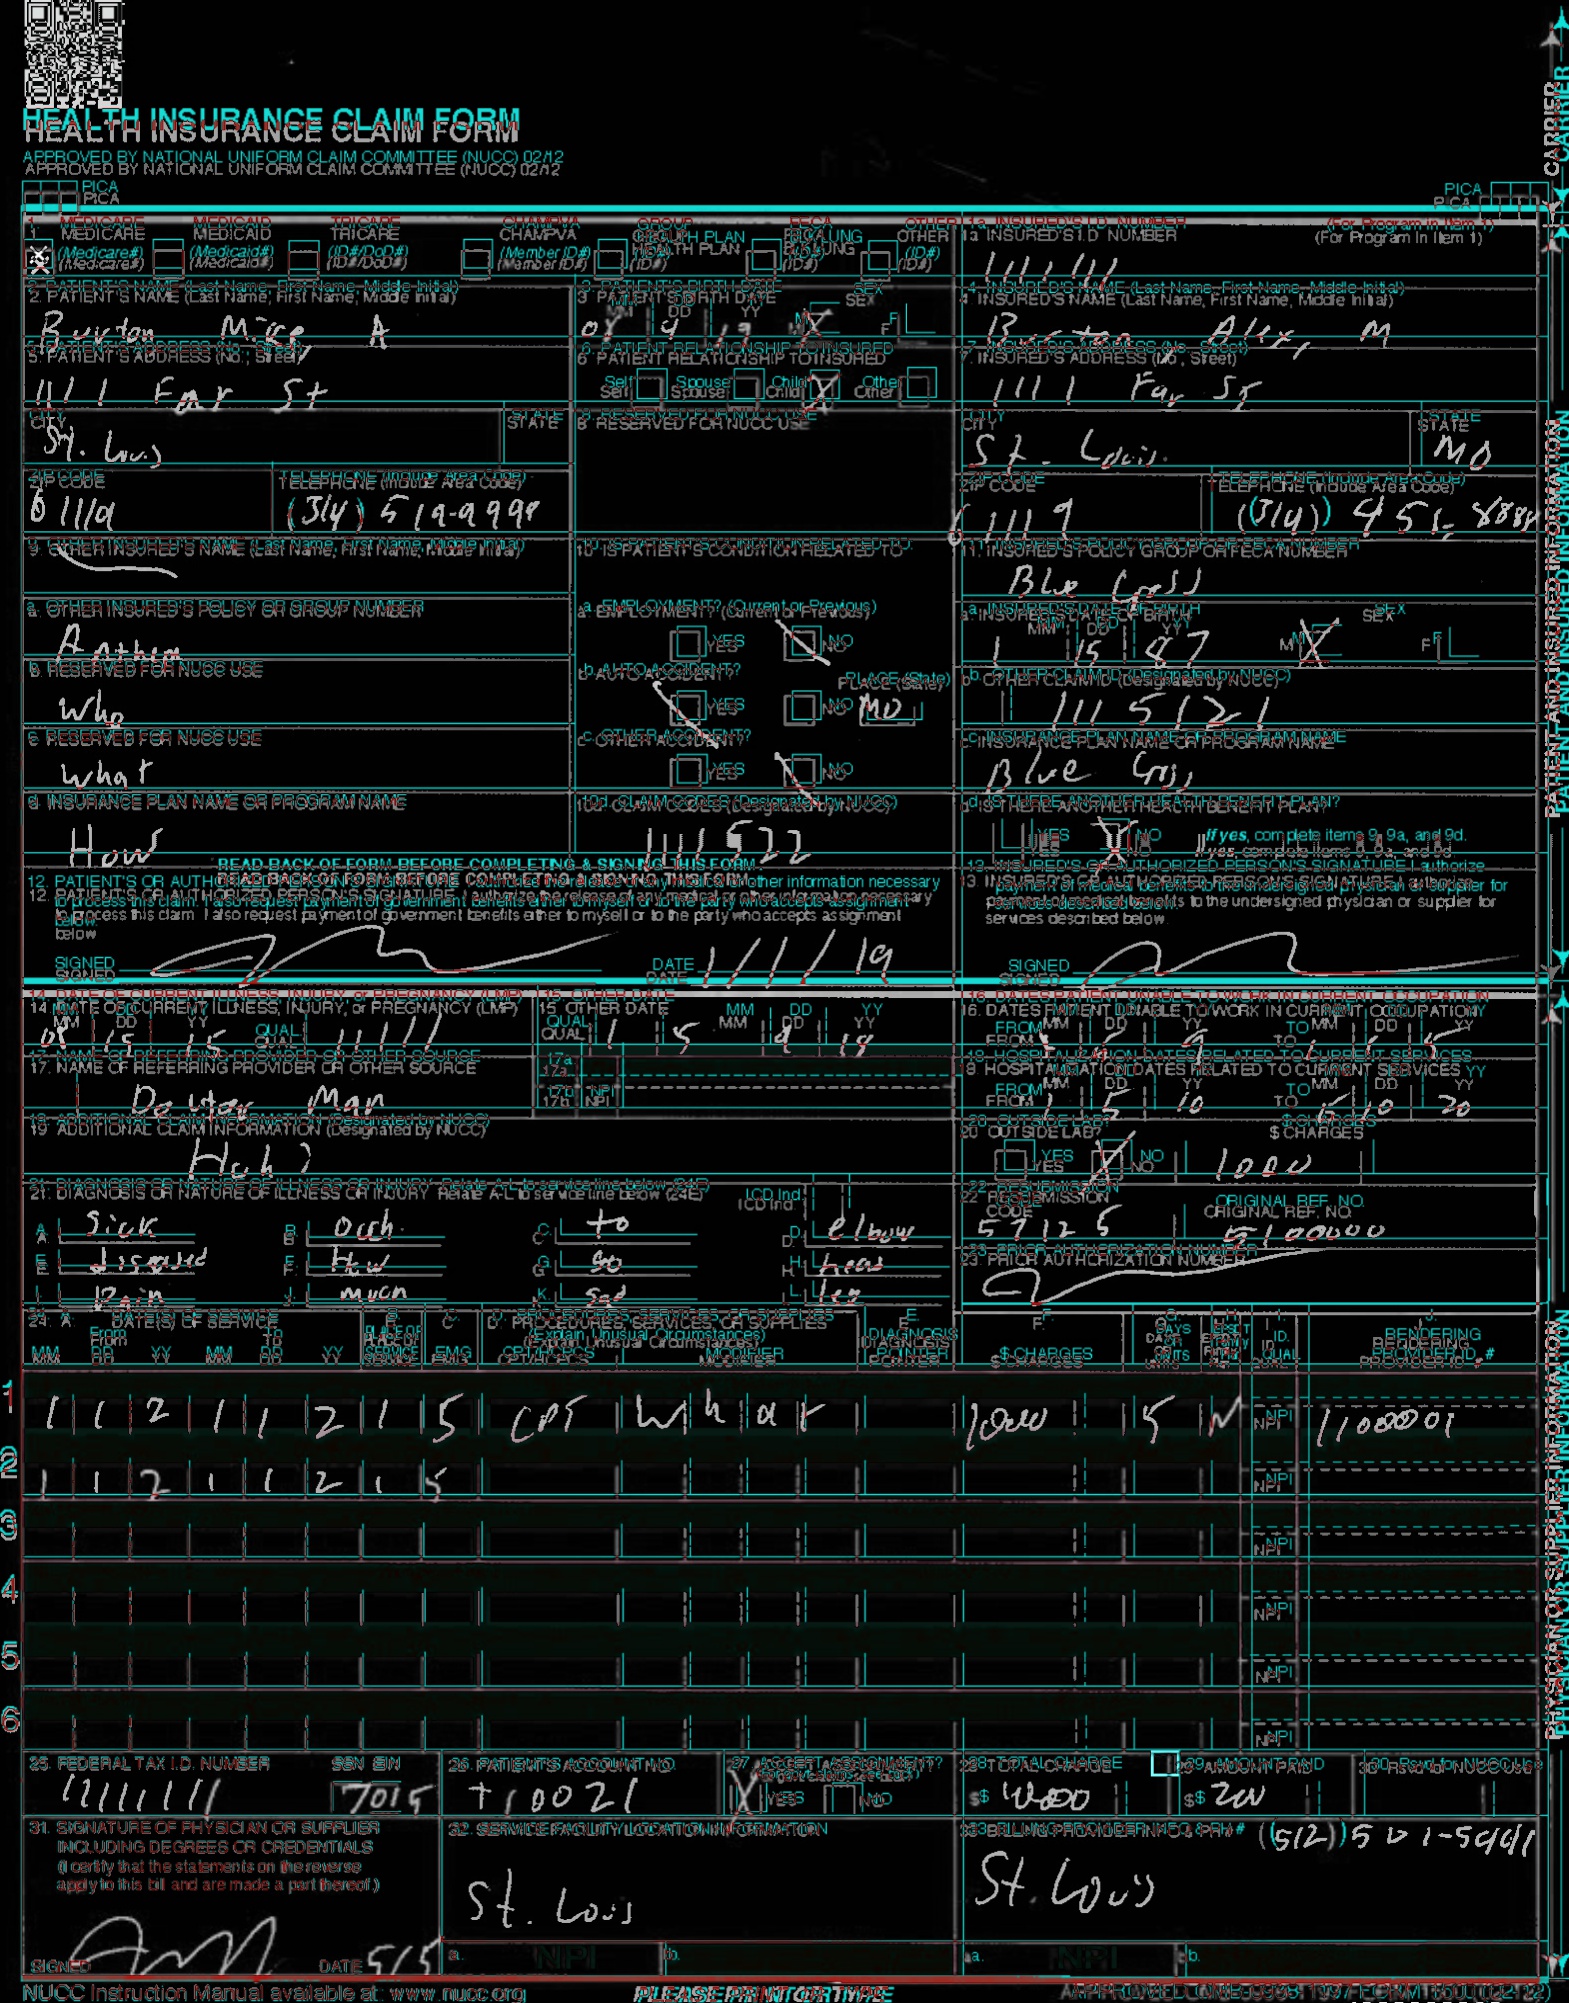 HEALTH INSURANCE CLAIM FORM
APPROVED BY NATIONAL UNIFORM CLAIM COMMITTEE (NUCC) 02/12
PICA PICA
1. MEDICARE MEDICAID TRICARE CHAMPVA GROUP HEALTH PLAN FECA BLK LUNG OTHER
(Medicare#) (Medicaid#) (ID#/DoD#) (Member ID#) (ID#) (ID#) (ID#)
1a. INSURED'S I.D. NUMBER (For Program in Item 1)
2. PATIENT'S NAME (Last Name, First Name, Middle Initial)
A
3. PATIENT'S BIRTH DATE SEX
MM DD YY M F
08 9 19
4. INSURED'S NAME (Last Name, First Name, Middle Initial)
Alex, M
5. PATIENT'S ADDRESS (No., Street)
1111 Far St
6. PATIENT RELATIONSHIP TO INSURED
Self Spouse Child Other
7. INSURED'S ADDRESS (No., Street)
1111 Far St
CITY STATE
St. Louis
8. RESERVED FOR NUCC USE
CITY STATE
St. Louis MO
ZIP CODE TELEPHONE (Include Area Code)
(314) 519-9998
ZIP CODE TELEPHONE (Include Area Code)
61119 (314)
9. OTHER INSURED'S NAME (Last Name, First Name, Middle Initial)
10. IS PATIENT'S CONDITION RELATED TO:
11. INSURED'S POLICY GROUP OR FECA NUMBER
Blue Cross
a. OTHER INSURED'S POLICY OR GROUP NUMBER
Anthem
a. EMPLOYMENT? (Current or Previous)
YES NO
a. INSURED'S DATE OF BIRTH SEX
MM DD YY M F
1 15 87
b. RESERVED FOR NUCC USE
Who
b. AUTO ACCIDENT? PLACE (State)
YES NO MO
b. OTHER CLAIM ID (Designated by NUCC)
1115121
c. RESERVED FOR NUCC USE
what
c. OTHER ACCIDENT?
YES NO
c. INSURANCE PLAN NAME OR PROGRAM NAME
Blue Cross
d. INSURANCE PLAN NAME OR PROGRAM NAME
How
10d. CLAIM CODES (Designated by NUCC)
d. IS THERE ANOTHER HEALTH BENEFIT PLAN?
YES NO If yes, complete items 9, 9a, and 9d.
READ BACK OF FORM BEFORE COMPLETING & SIGNING THIS FORM.
12. PATIENT'S OR AUTHORIZED PERSON'S SIGNATURE I authorize the release of any medical or other information necessary
to process this claim. I also request payment of government benefits either to myself or to the party who accepts assignment
below.
SIGNED DATE 1/1/19
13. INSURED'S OR AUTHORIZED PERSON'S SIGNATURE I authorize
payment of medical benefits to the undersigned physician or supplier for
services described below.
SIGNED
14. DATE OF CURRENT ILLNESS, INJURY, or PREGNANCY (LMP)
MM DD YY QUAL.
08 15 15 11111
15. OTHER DATE
QUAL. MM DD YY
1 5 9 18
16. DATES PATIENT UNABLE TO WORK IN CURRENT OCCUPATION
FROM MM DD YY TO MM DD YY
17. NAME OF REFERRING PROVIDER OR OTHER SOURCE
Man
17a.
17b. NPI
18. HOSPITALIZATION DATES RELATED TO CURRENT SERVICES
FROM MM DD YY TO MM DD YY
1 5 10 10 20
19. ADDITIONAL CLAIM INFORMATION (Designated by NUCC)
Huh?
20. OUTSIDE LAB? $ CHARGES
YES NO 1000
21. DIAGNOSIS OR NATURE OF ILLNESS OR INJURY Relate A-L to service line below (24E) ICD Ind.
A. Sick B. C. to D. elbow
E. F. How G. So H. head
I. Pain J. much K. sad L. leg
22. RESUBMISSION CODE ORIGINAL REF. NO.
57125 5100000
23. PRIOR AUTHORIZATION NUMBER
24. A. DATE(S) OF SERVICE B. PLACE OF SERVICE C. EMG D. PROCEDURES, SERVICES, OR SUPPLIES E. DIAGNOSIS POINTER F. $ CHARGES G. DAYS OR UNITS H. I. ID. QUAL. J. RENDERING PROVIDER ID. #
From To (Explain Unusual Circumstances)
MM DD YY MM DD YY CPT/HCPCS MODIFIER
1 1 1 2 1 1 2 1 5 CPT W h a t 1000 5 N NPI 1100001
2 1 1 2 1 1 2 1 5 NPI
3 NPI
4 NPI
5 NPI
6 NPI
25. FEDERAL TAX I.D. NUMBER SSN EIN
11111111 7015
26. PATIENT'S ACCOUNT NO.
T10021
27. ACCEPT ASSIGNMENT?
YES NO
28. TOTAL CHARGE
$
29. AMOUNT PAID
$ 200
30. Rsvd for NUCC Use
31. SIGNATURE OF PHYSICIAN OR SUPPLIER
INCLUDING DEGREES OR CREDENTIALS
(I certify that the statements on the reverse
apply to this bill and are made a part thereof.)
SIGNED DATE 5/5
32. SERVICE FACILITY LOCATION INFORMATION
St. Louis
a. NPI b.
33. BILLING PROVIDER INFO & PH # (512) 501-5441
St. Louis
a. NPI b.
NUCC Instruction Manual available at: www.nucc.org
PLEASE PRINT OR TYPE
CARRIER
PATIENT AND INSURED INFORMATION
PHYSICIAN OR SUPPLIER INFORMATION